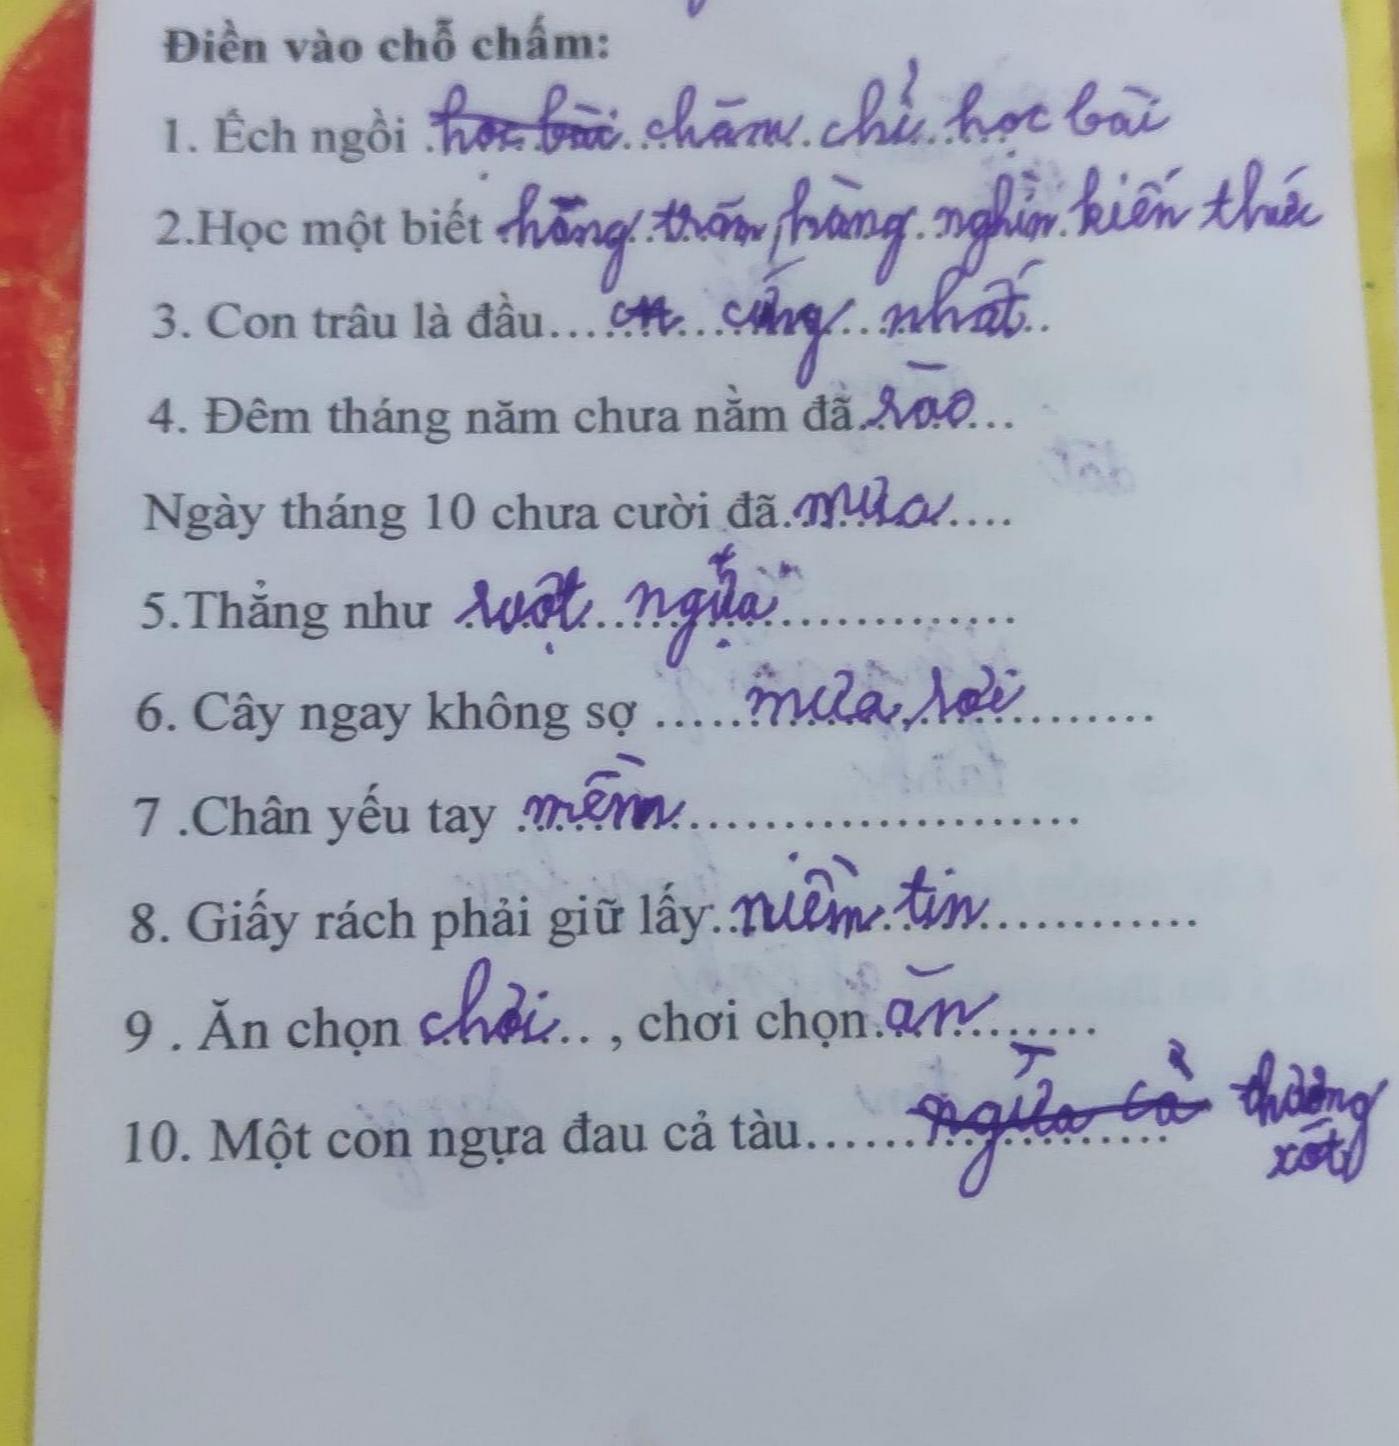 Điền vào chỗ chấm:
1. Ếch ngồi học bài chăm chỉ học bài
2.Học một biết hằng trăm, hàng nghìn kiến thức
3. Con trâu là đầu...... cứng nhất..
4. Đêm tháng năm chưa nằm đã rào...
Ngày tháng 10 chưa cười đã.mưa....
5.Thẳng như ruột ngựa..............
6. Cây ngay không sợ .....mưa, rơi..........
7 .Chân yếu tay mềm......................
8. Giấy rách phải giữ lấy..niềm tin............
9 . Ăn chọn chơi.. , chơi chọn.ăn.......
10. Một con ngựa đau cả tàu......ngựa cả thương
xót